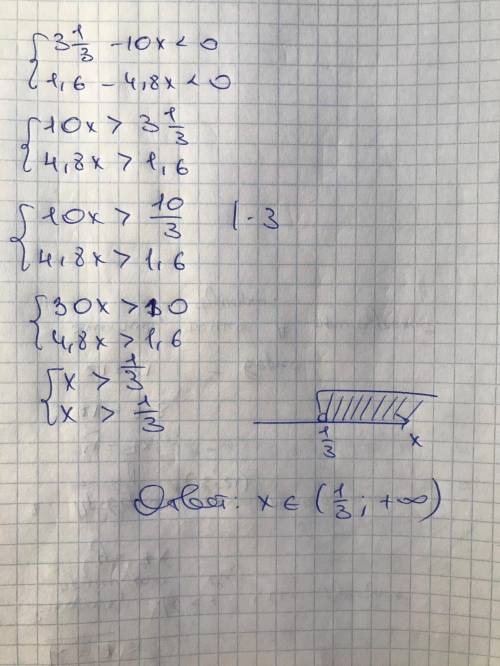 { 3 1/3 - 10x < 0
{ 1,6 - 4,8x < 0
{ 10x > 3 1/3
{ 4,8x > 1,6
{ 10x > 10/3 | · 3
{ 4,8x > 1,6
{ 30x > 10
{ 4,8x > 1,6
{ x > 1/3
{ x > 1/3
1/3 x
Ответ: x ∈ (1/3; +∞)